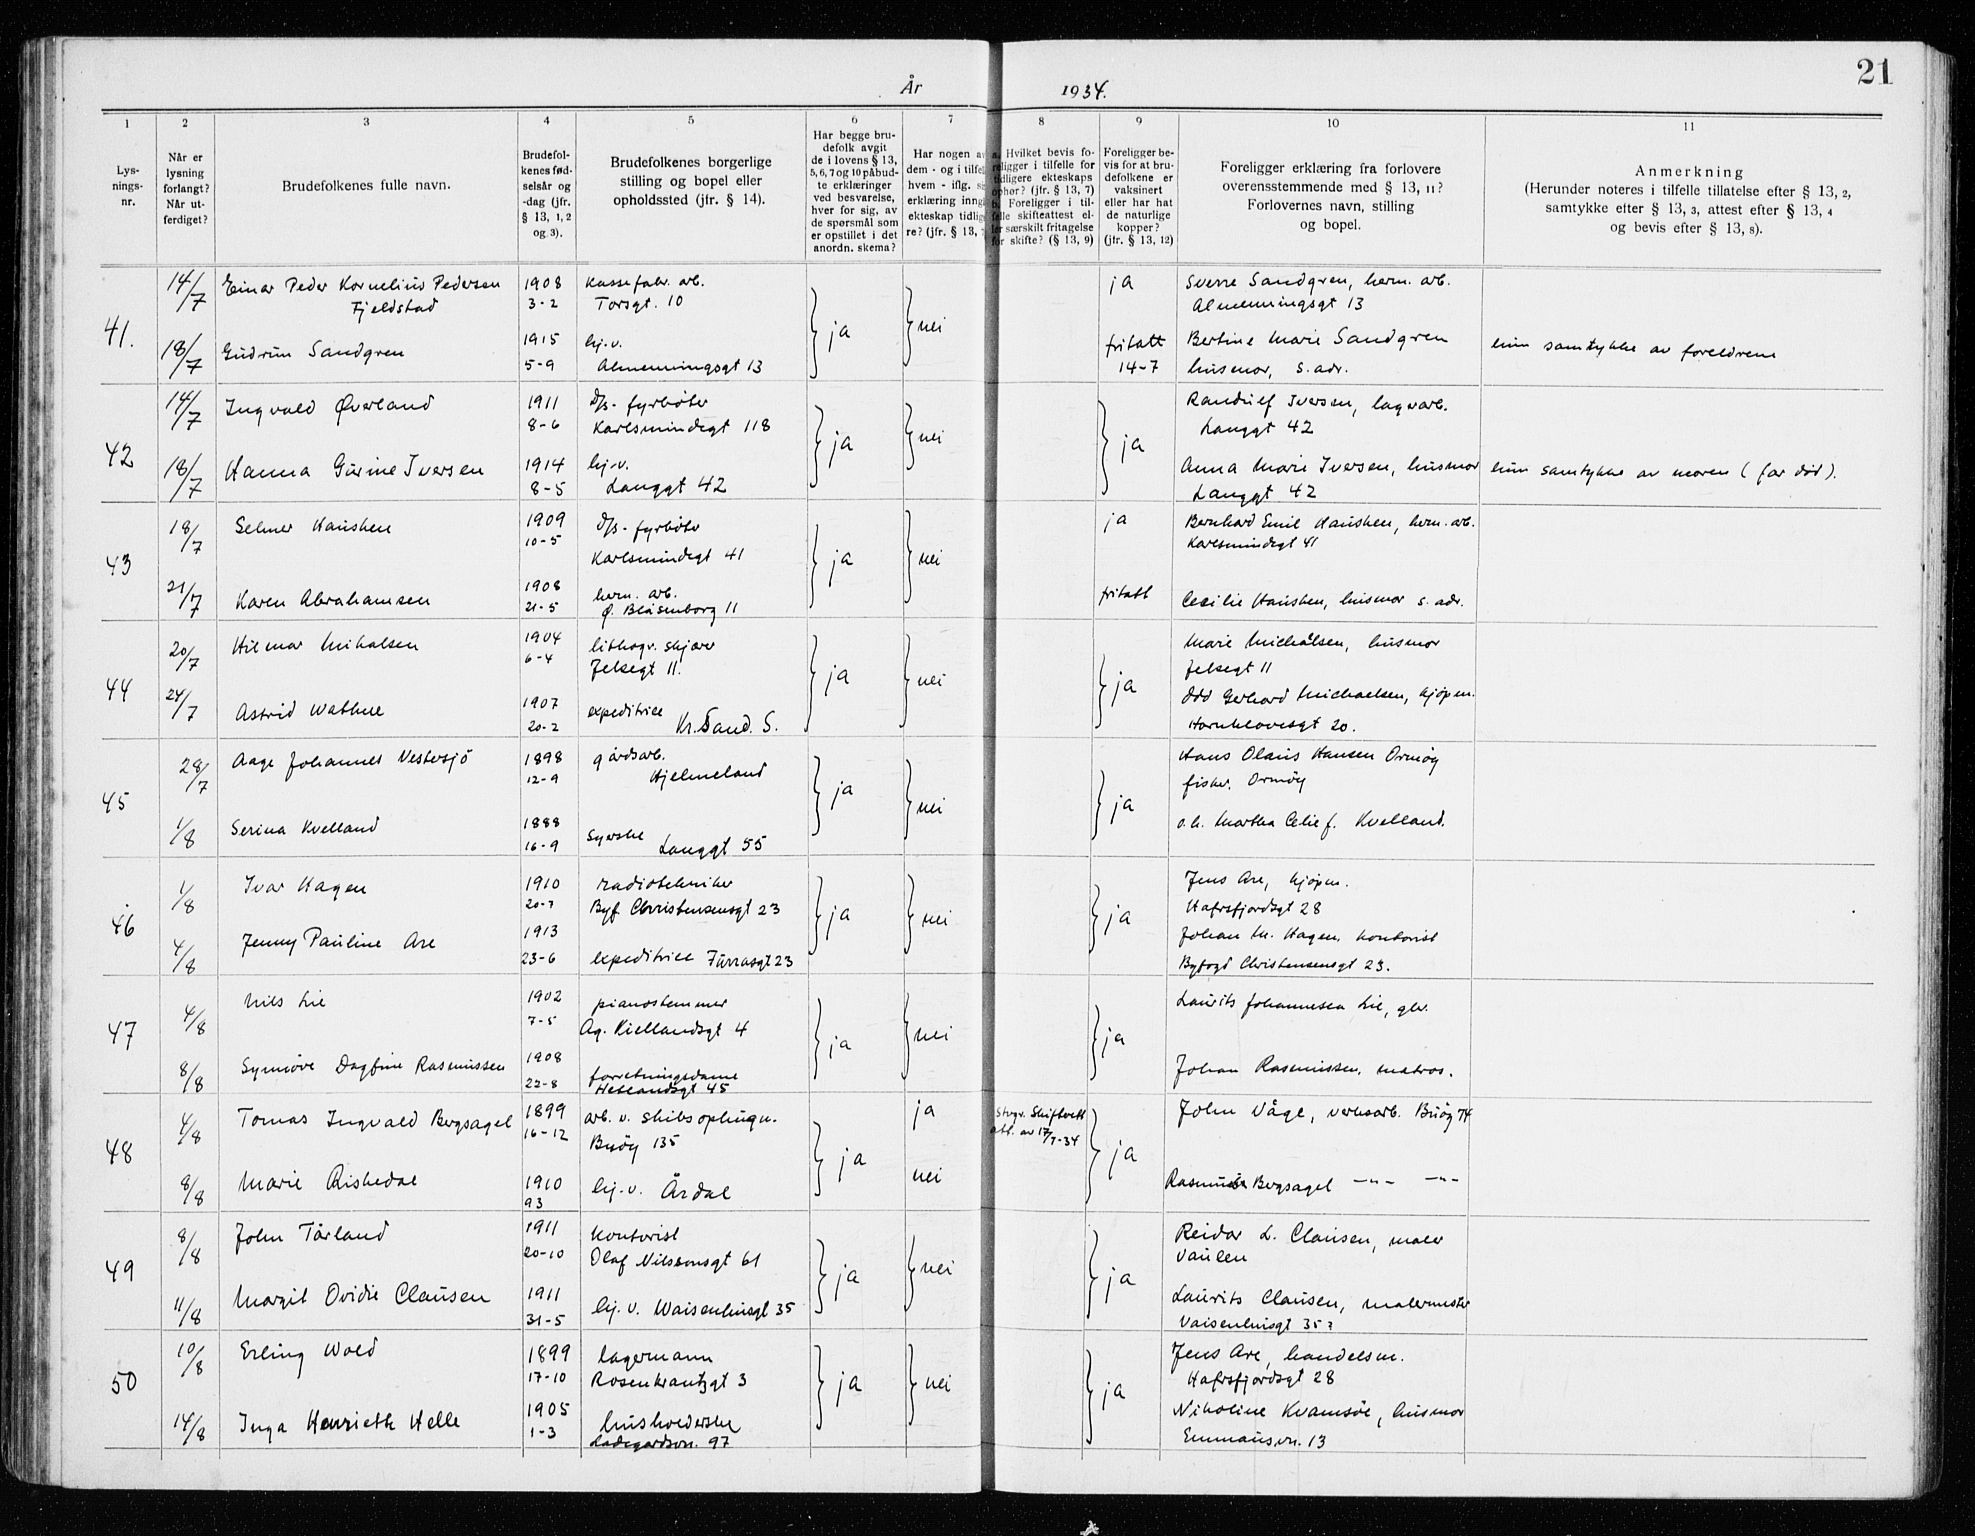 21
År 1934.
1 2 3 4 5 6 7 8 9 10 11
Lys-
nings-
nr.
Når er
lysning
forlangt?
Når ut-
ferdiget?
Brudefolkenes fulle navn.
Brudefol-
kenes fød-
selsår og
-dag (jfr.
§ 13, 1, 2
og 3).
Brudefolkenes borgerlige
stilling og bopel eller
opholdssted (jfr. § 14).
Har begge bru-
defolk avgit
de i lovens § 13,
5, 6, 7 og 10 påbud-
te erklæringer
ved besvarelse,
hver for sig, av
de spørsmål som
er opstillet i det
anordn. skema?
Har nogen av
dem - og i tilfel
hvem - iflg.
erklæring inng
ekteskap tidlig
re? (jfr. § 13,
a. Hvilket bevis fo-
religger i tilfelle for
tidligere ekteskaps
ophør? (jfr. § 13, 7)
b. Foreligger i til-
felle skifteattest el-
ler særskilt fritagelse
for skifte? (§ 13, 9)
Foreligger be-
vis for at bru-
defolkene er
vaksinert
eller har hat
de naturlige
kopper?
(jfr. § 13, 12)
Foreligger erklæring fra forlovere
overensstemmende med § 13, 11?
Forlovernes navn, stilling
og bopel.
Anmerkning
(Herunder noteres i tilfelle tillatelse efter § 13, 2,
samtykke efter § 13, 3, attest efter § 13, 4
og bevis efter § 13, 8).
41.
14/7 Einar Peder Kornelius Pedersen 1908 kassefabr. arb. ja nei ja Sverre Sandgren, herm. arb.
Fjeldstad 3-2 Torsgt. 10 Almenningsgt 13
18/7 Gudrun Sandgren 1915 hj.v. fritatt Bertine Marie Sandgren hun samtykke av foreldrene
5-9 Almenningsgt 13 14-7 husmor, s. adr.
42
14/7 Ingvald Øverland 1911 D/s- fyrbøter ja nei ja Randulf Iversen, lagerarb.
8-6 Karlsmindegt 118 Langgt 42
18/7 Hanna Gurine Iversen 1914 hj-v. Anna Marie Iversen, husmor hun samtykke av moren (far død).
8-5 Langgt 42 Langgt 42
43
18/7 Selmer Hausken 1909 D/s- fyrbøter ja nei ja Bernhard Emil Hausken, herm. arb.
10-5 Karlsmindegt 41 Karlsmindegt 41
21/7 Karen Abrahamsen 1908 herm. arb. fritatt Cecilie Hausken, husmor s. adr.
21-5 Ø. Blåsenborg 11
44
20/7 Hilmar Mikalsen 1904 lithogr. skjær ja nei ja Marie Michalsen, husmor
6-4 Jelsegt 11. Jelsegt 11
24/7 Astrid Wathne 1907 expeditrice Odd Gerhard Michaelsen, kjøpm.
20-2 Kr. Sand. S. Harnklovesgt 20.
45
28/7 Aage Johannes Vestersjö 1898 gårdsarb. ja nei ja Hans Olaus Hansen Ormøy
12-9 Hjelmeland fisker, Ormøy
1/8 Serina Kvelland 1888 syerske o.h. Martha Celie f. Kvelland.
16-9 Langgt 55
46
1/8 Ivar Hagen 1910 radiotekniker ja nei ja Jens Are, kjøpm.
20-7 Byf Christensensgt 23 Hafrsfjordsgt 28
4/8 Jenny Pauline Are 1913 Johan M. Hagen, kontorist
23-6 expeditrice Furrasgt 23 Byfogd Christensensgt 23.
47
4/8 Nils Lie 1902 pianostemmer ja nei ja Laurits Johannesen Lie, gbr.
7-5 Ag. Kiellandsgt 4
8/8 Synnøve Dagfine Rasmussen 1908 forretningsdame Johan Rasmussen, matros.
22-8 Hetlandsgt 45
48
4/8 Tomas Ingvald Bergsagel 1899 arb. v. skibsophugn. ja ja Stvgr. Skifterett ja John Våge, verksarb. Buøy 74
16-12 Buøy 135 att. av 17/7-34
8/8 Marie Riskedal 1910 hj.-v. Årdal nei Rasmus Bergsagel —"— —"—
93
49
8/8 John Tårland 1911 kontorist ja nei ja Reidar L. Clausen, maler
20-10 Olaf Nilssonsgt 61 Vaulen
11/8 Margit Ovidie Clausen 1911 hj. v. Waisenhusgt 35 Laurits Clausen, malermester
31-5 Vaisenhusgt 35?
50
10/8 Erling Wold 1899 lagermann ja nei ja Jens Are, handelsm.
17-10 Rosenkrantzgt 3 Hafrsfjordsgt 28
14/8 Inga Henriette Helle 1905 husholderske Nikoline Kvamsöe, husmor
1-3 Ladegardsvn. 97 Emmausvn. 13